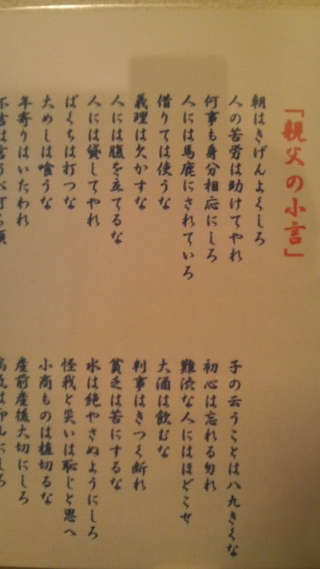 「親父の小言」
朝はきげんよくしろ
人の苦労は助けてやれ
何事も身分相応にしろ
人には馬鹿にされていろ
借りては使うな
義理は欠かすな
人には腹を立てるな
人には貸してやれ
ばくちは打つな
大めしは喰うな
年寄りはいたわれ
子の云うことは八九きくな
初心は忘れる勿れ
難渋な人にはほどこせ
大酒は飲むな
判事はきつく断れ
貧乏は苦にするな
水は絶やさぬようにしろ
怪我と災いは恥じと思へ
小商ものは値切るな
産前産後大切にしろ